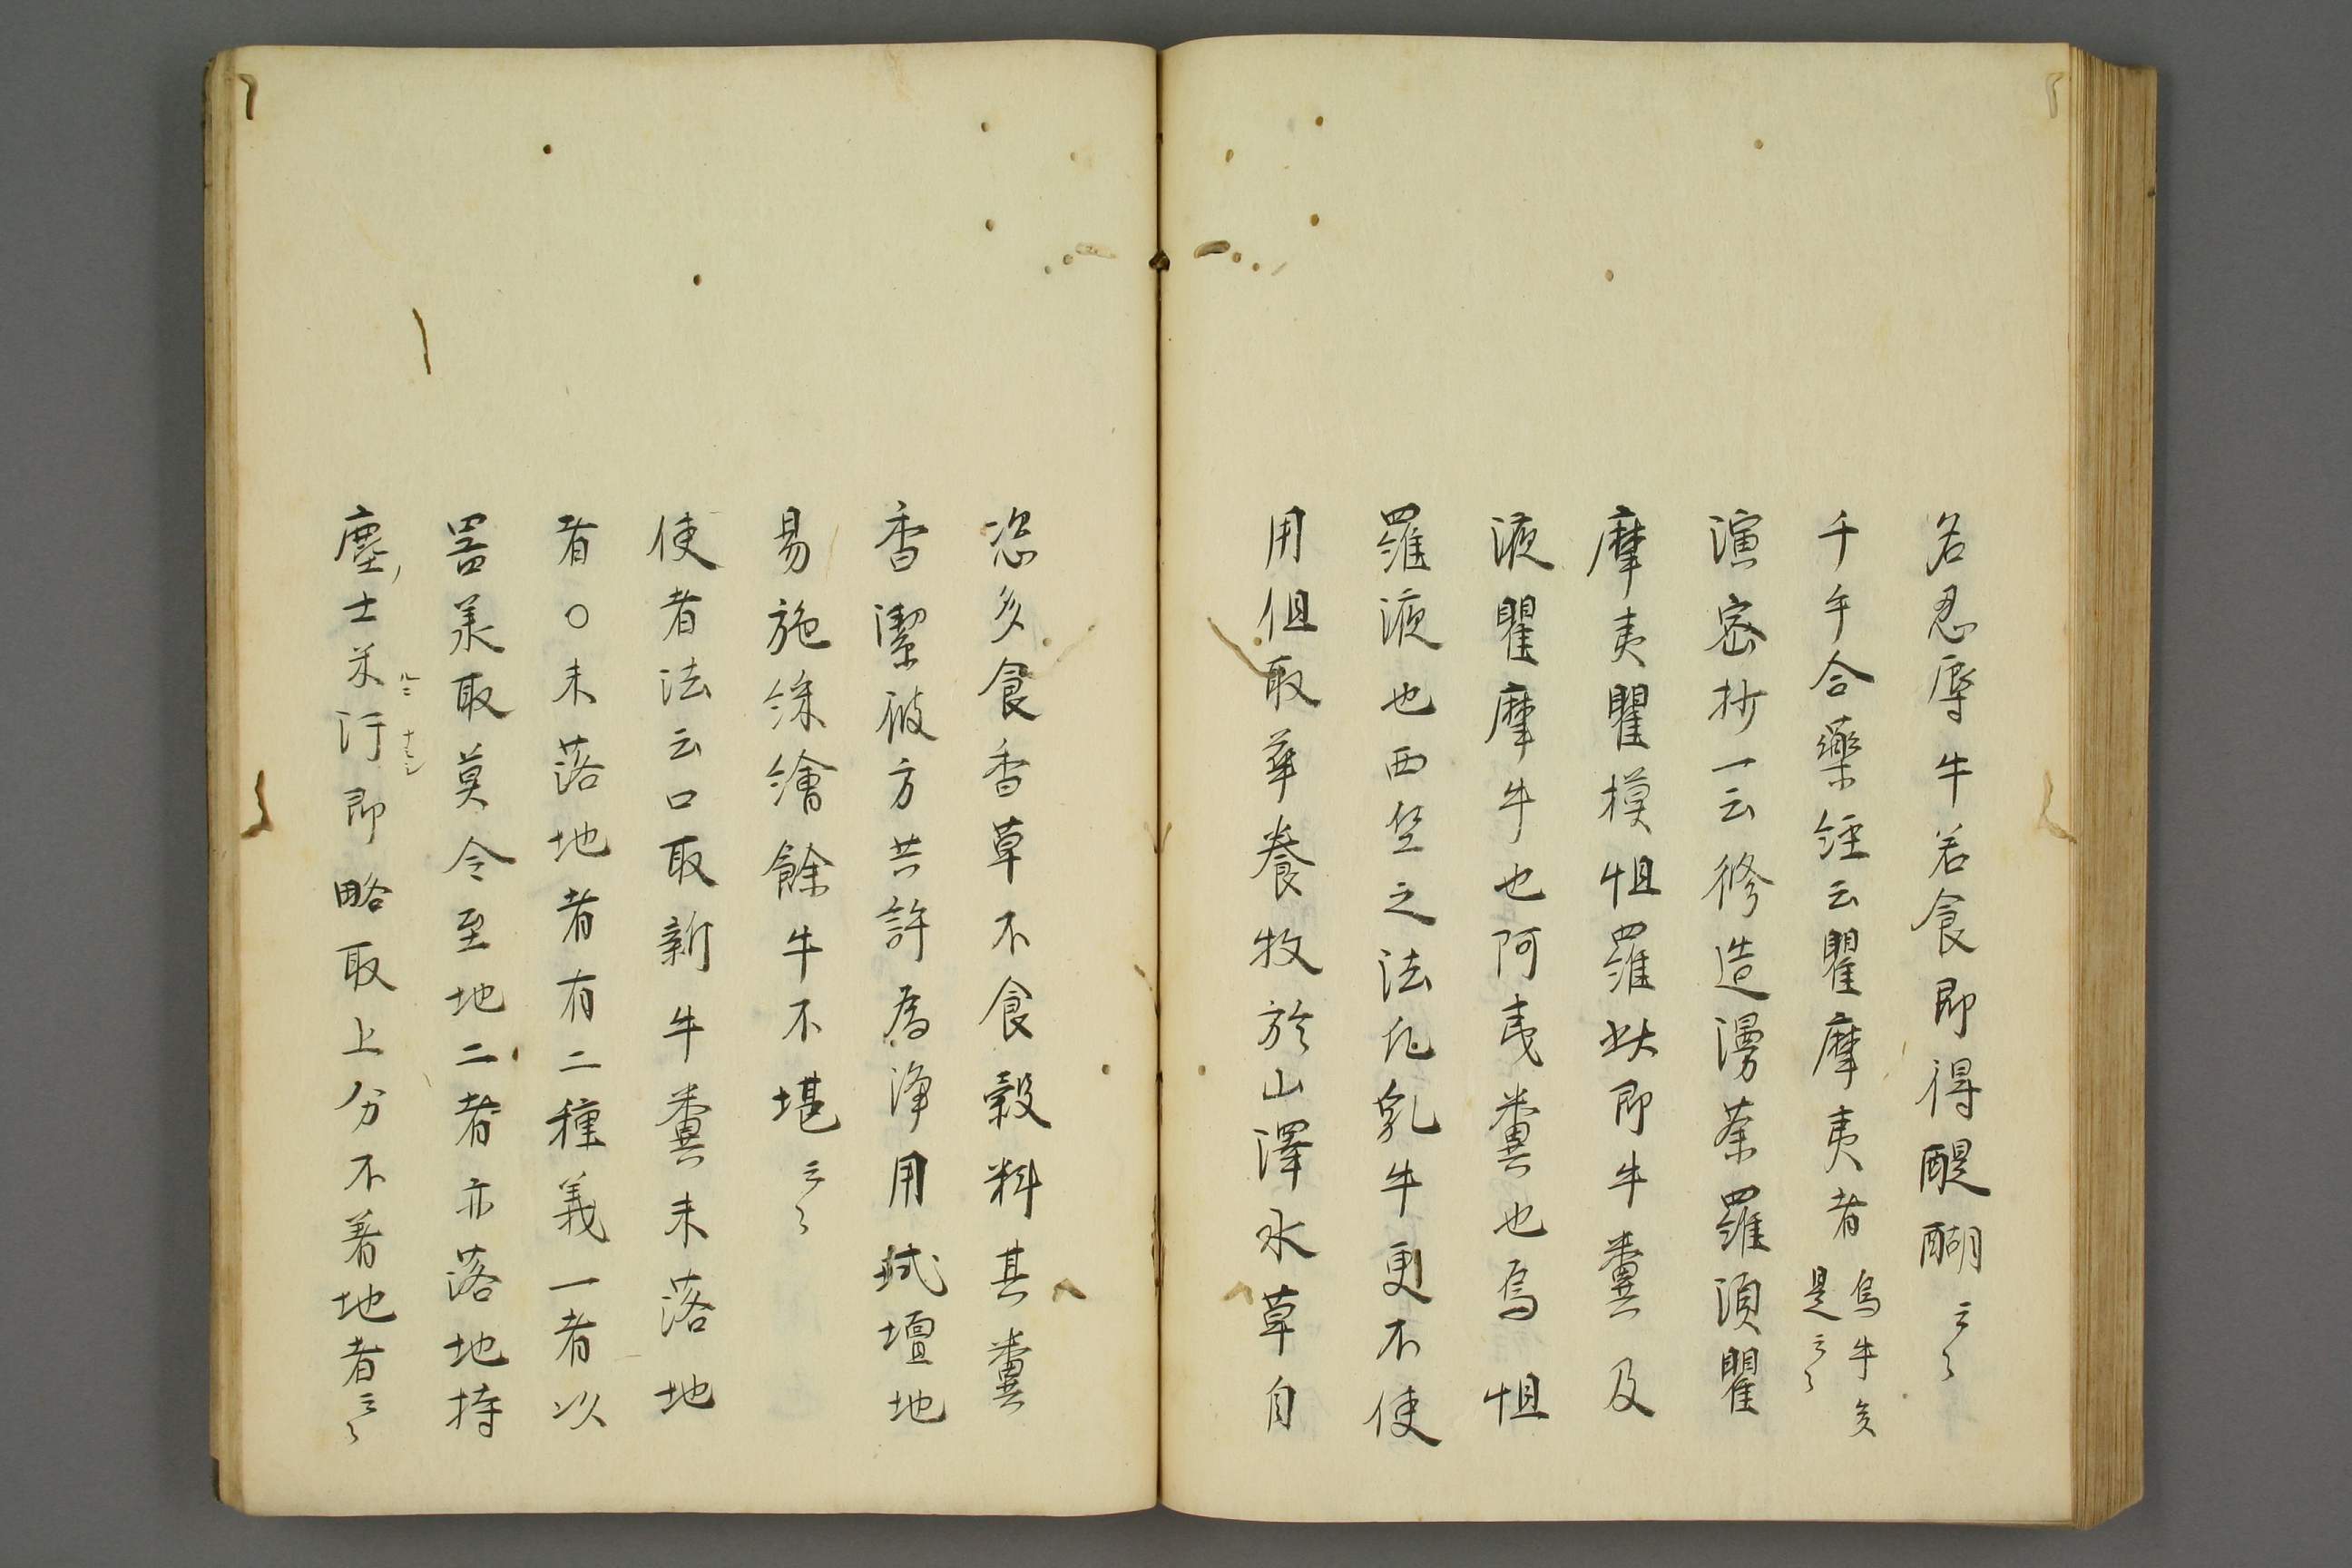 名忍辱牛若食即得醍醐云々
千手合藥經云瞿摩夷者烏牛矢是云々
演密抄一云修造漫荼羅須瞿
摩夷瞿摸怛羅此即牛糞及
液瞿摩牛也阿夷糞也烏怛
羅液也西竺之法凡乳牛更不使
用但取華養牧於山澤水草自
恣多食香草不食穀料其糞
香潔彼方共許為淨用拭壇地
易施綵繪餘牛不堪云々
使者法云口取新牛糞未落地
者〇未落地者有二種義一者以
器羕取莫令至地二者亦落地持
塵土米汙即略取上分不著地者云々